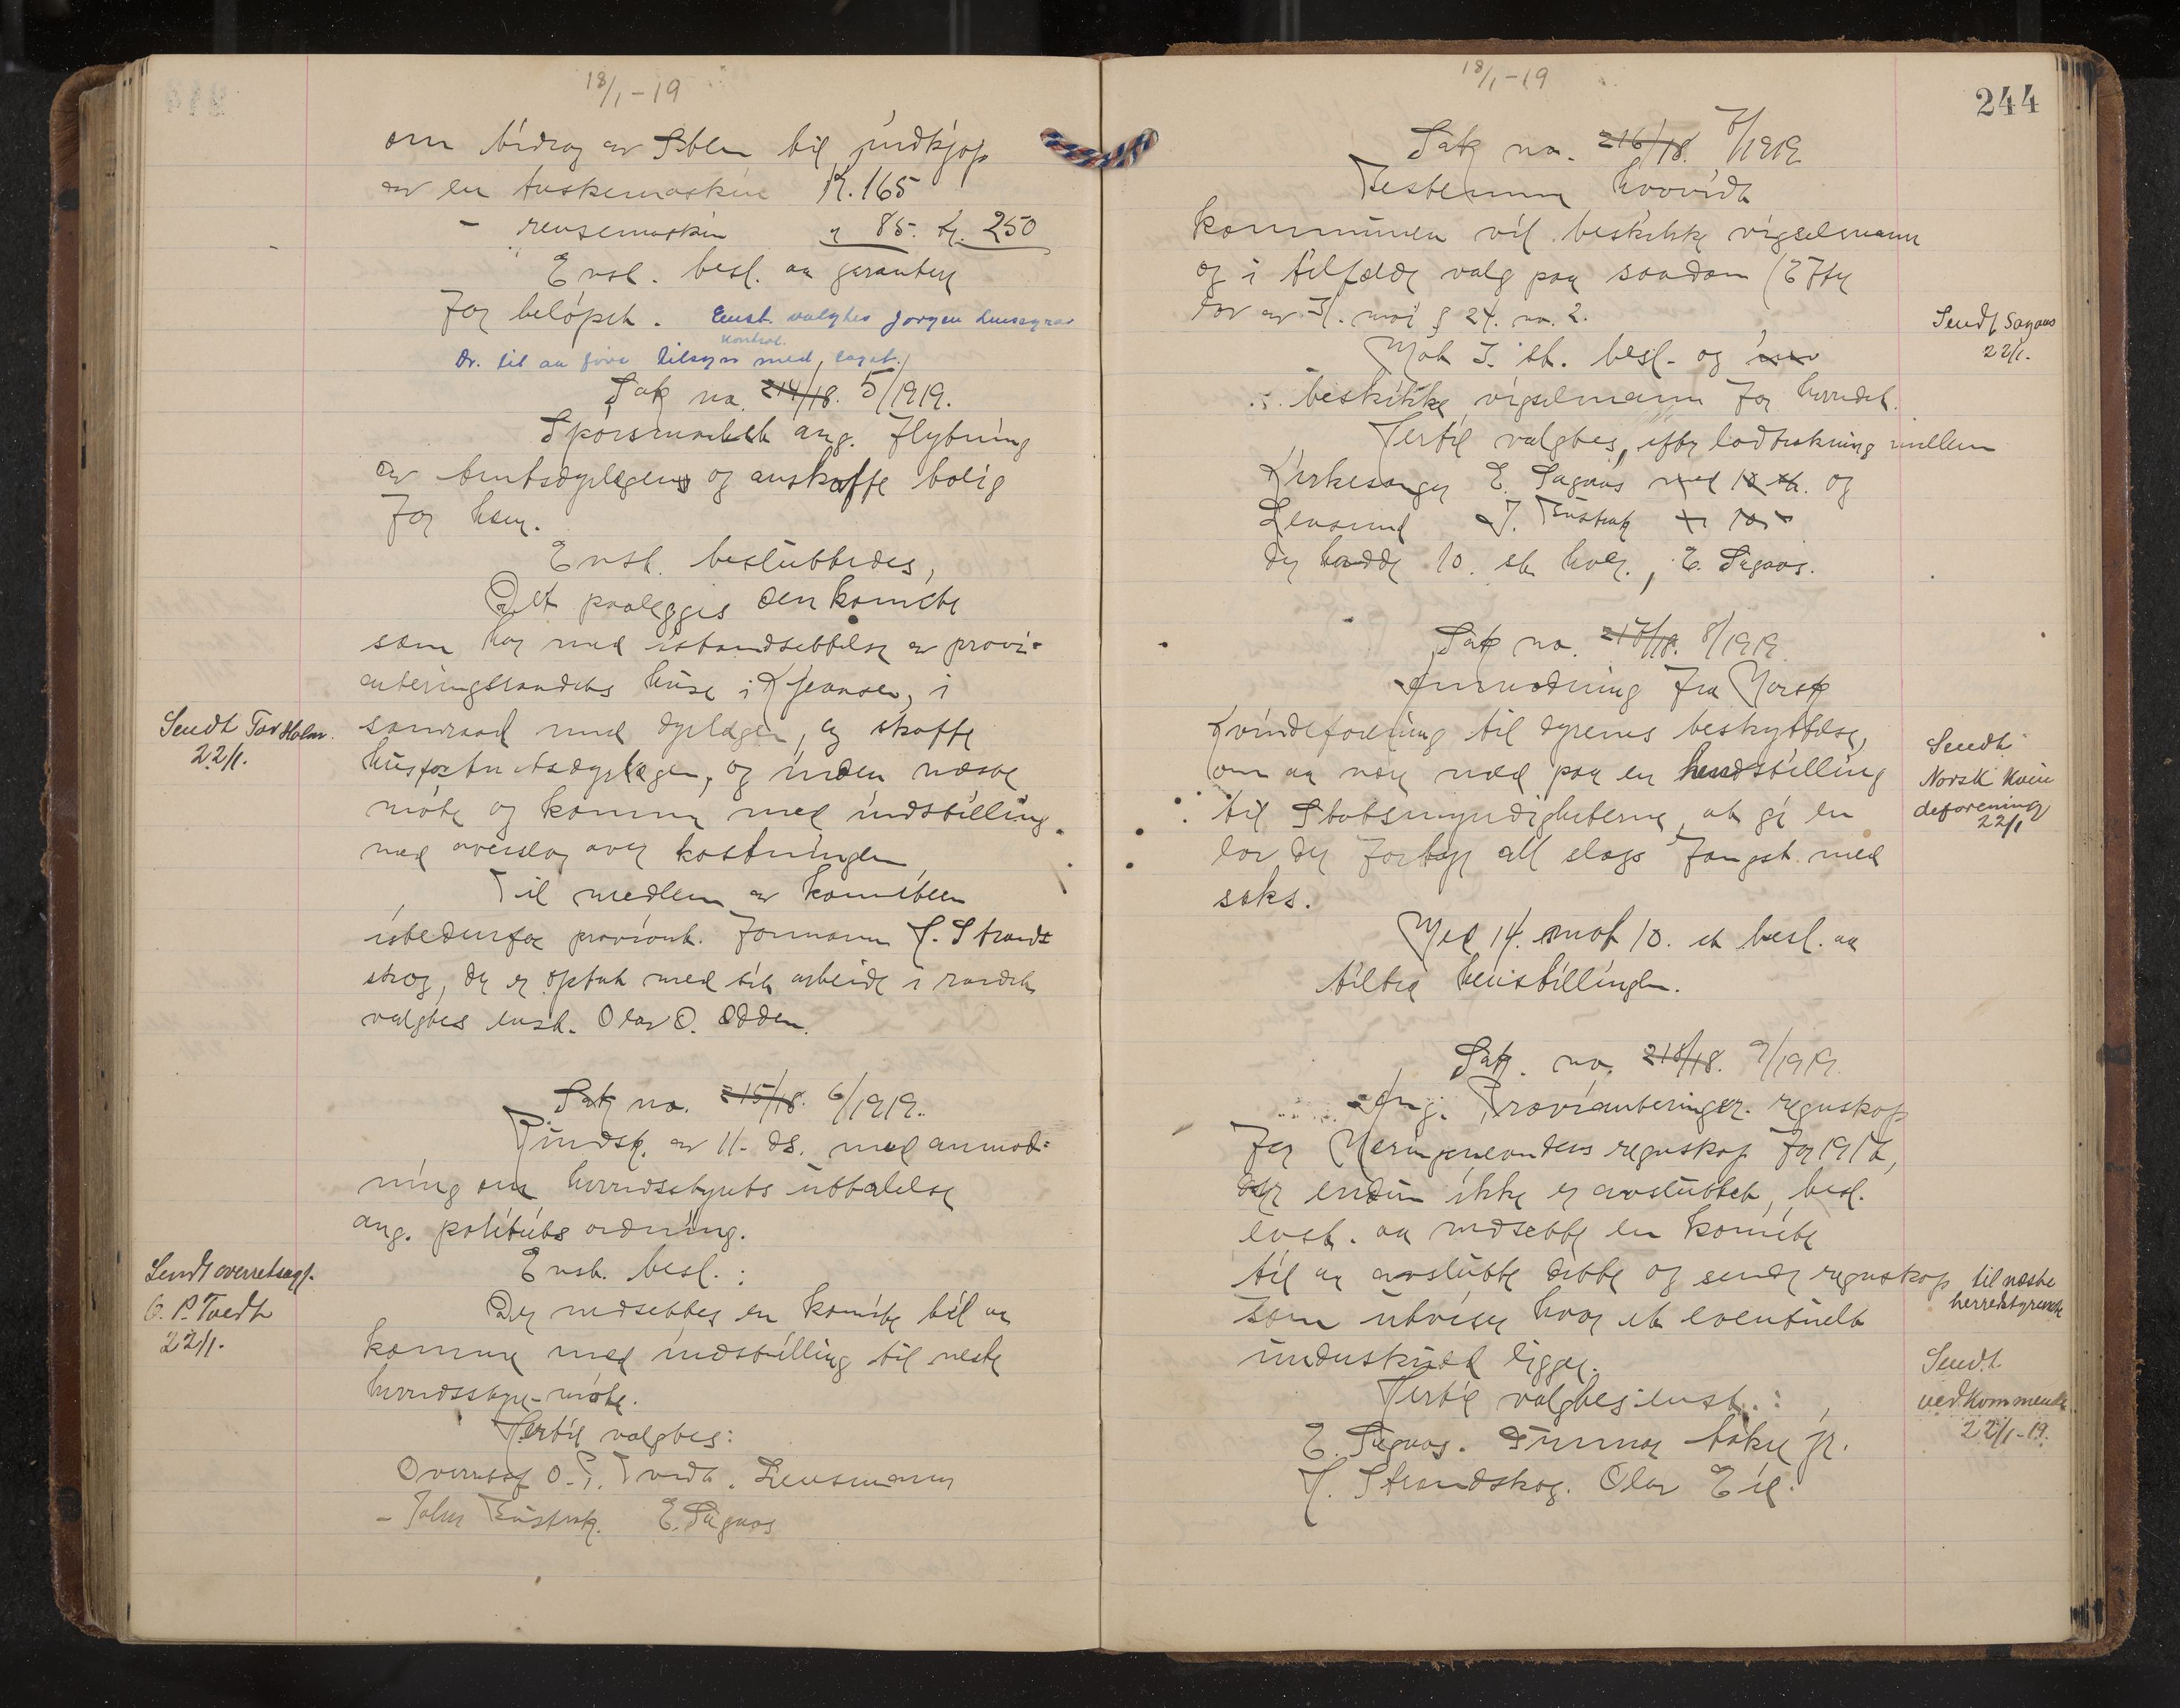 18/1-19
om bidrag av Stten til indkjøp
av en tuskemaskin Kr. 165
- " rensemaskin " 85. kr. 250
Enst. besl. aa garantere
for beløpet. Enst. valgtes Jørgen
til aa føre tilsyn kontrol. med
Sak no. 214/18. 5/1919.
Spørsmaalet ang. flytning
av Amtsdyrlægen og anskaffe bolig
for ham.
Enst. besluttedes,
Det paalegges den komite
som har med istandsættelse av provi-
anteringsraadets huse i Kjeransen, i
samraad med dyrlægen, og skaffe
hus for Amtsdyrlægen, og inden næste
møte og komme med indstilling
med overslag over kostningen
Sendt Tov Holm.
22/1.
Til medlem av komiteen
istedenfor proviant. formann H. Strand-
skog, der er optat med sit arbeide i raadet
valgtes enst. Olav O. Odden.
Sak no. 215/18. 6/1919.
Rundsk. av 11. ds. med anmod-
ning om herredsstyrets uttalelse
ang. politiets ordning.
Enst. besl.:
Der nedsettes en komite til at
komme med indstilling til neste
herredsstyre-møte.
Hertil valgtes:
Overretssf. O. P. Tvedt. Lensmann
- John Bustrak. E. Sagaas
Sendt overretssagf.
O. P. Tvedt
22/1.
18/1-19
244
Sak no. 216/18. 7/1919
Bestemme hvorvidt
kommunen vil beskikke vigselmann
og i tilfælde valg paa saadan (Efter
lov av 31. mai § 24. no. 2.
Mot 3. st. besl. og
beskikke vigselmann for herredet.
Hertil valgtes, efter lodtrekning imellem
Kirkesanger E. Sagaas med 10 st. og
Lensmd J. Bustrak " 10 "
der hadde 10. st. hver, E. Sagaas.
Sendt Sagaas
22/1.
Sak no. 217/18. 8/1919
Anmodning fra Norsk
Kvindeforening til dyrenes beskyttelse,
om aa være med paa en henstilling
til Statsmyndigheterne, at gi en
lov der forbyr all slags fangst med
saks.
Med 14. mot 10. st besl. aa
tiltræ henstillingen.
Sendt
Norsk Kvin
deforening
22/1
Sak. no. 218/18. 9/1919.
Ang. Provianteringsr. regnskap
For Næringsnevndens regnskap for 1917,
der endnu ikke er avsluttet, besl.
enst. aa nedsette en komite
til aa avslutte dette og sende regnskap til næste
herredstyremøte
som utviser hvor et eventuelt
underskudd ligger.
Hertil valgtes enst.:
E. Sagaas. Gunnar Aaker jr.
H. Strandskog. Olav Eid.
Sendt
vedkommende
22/1-19.